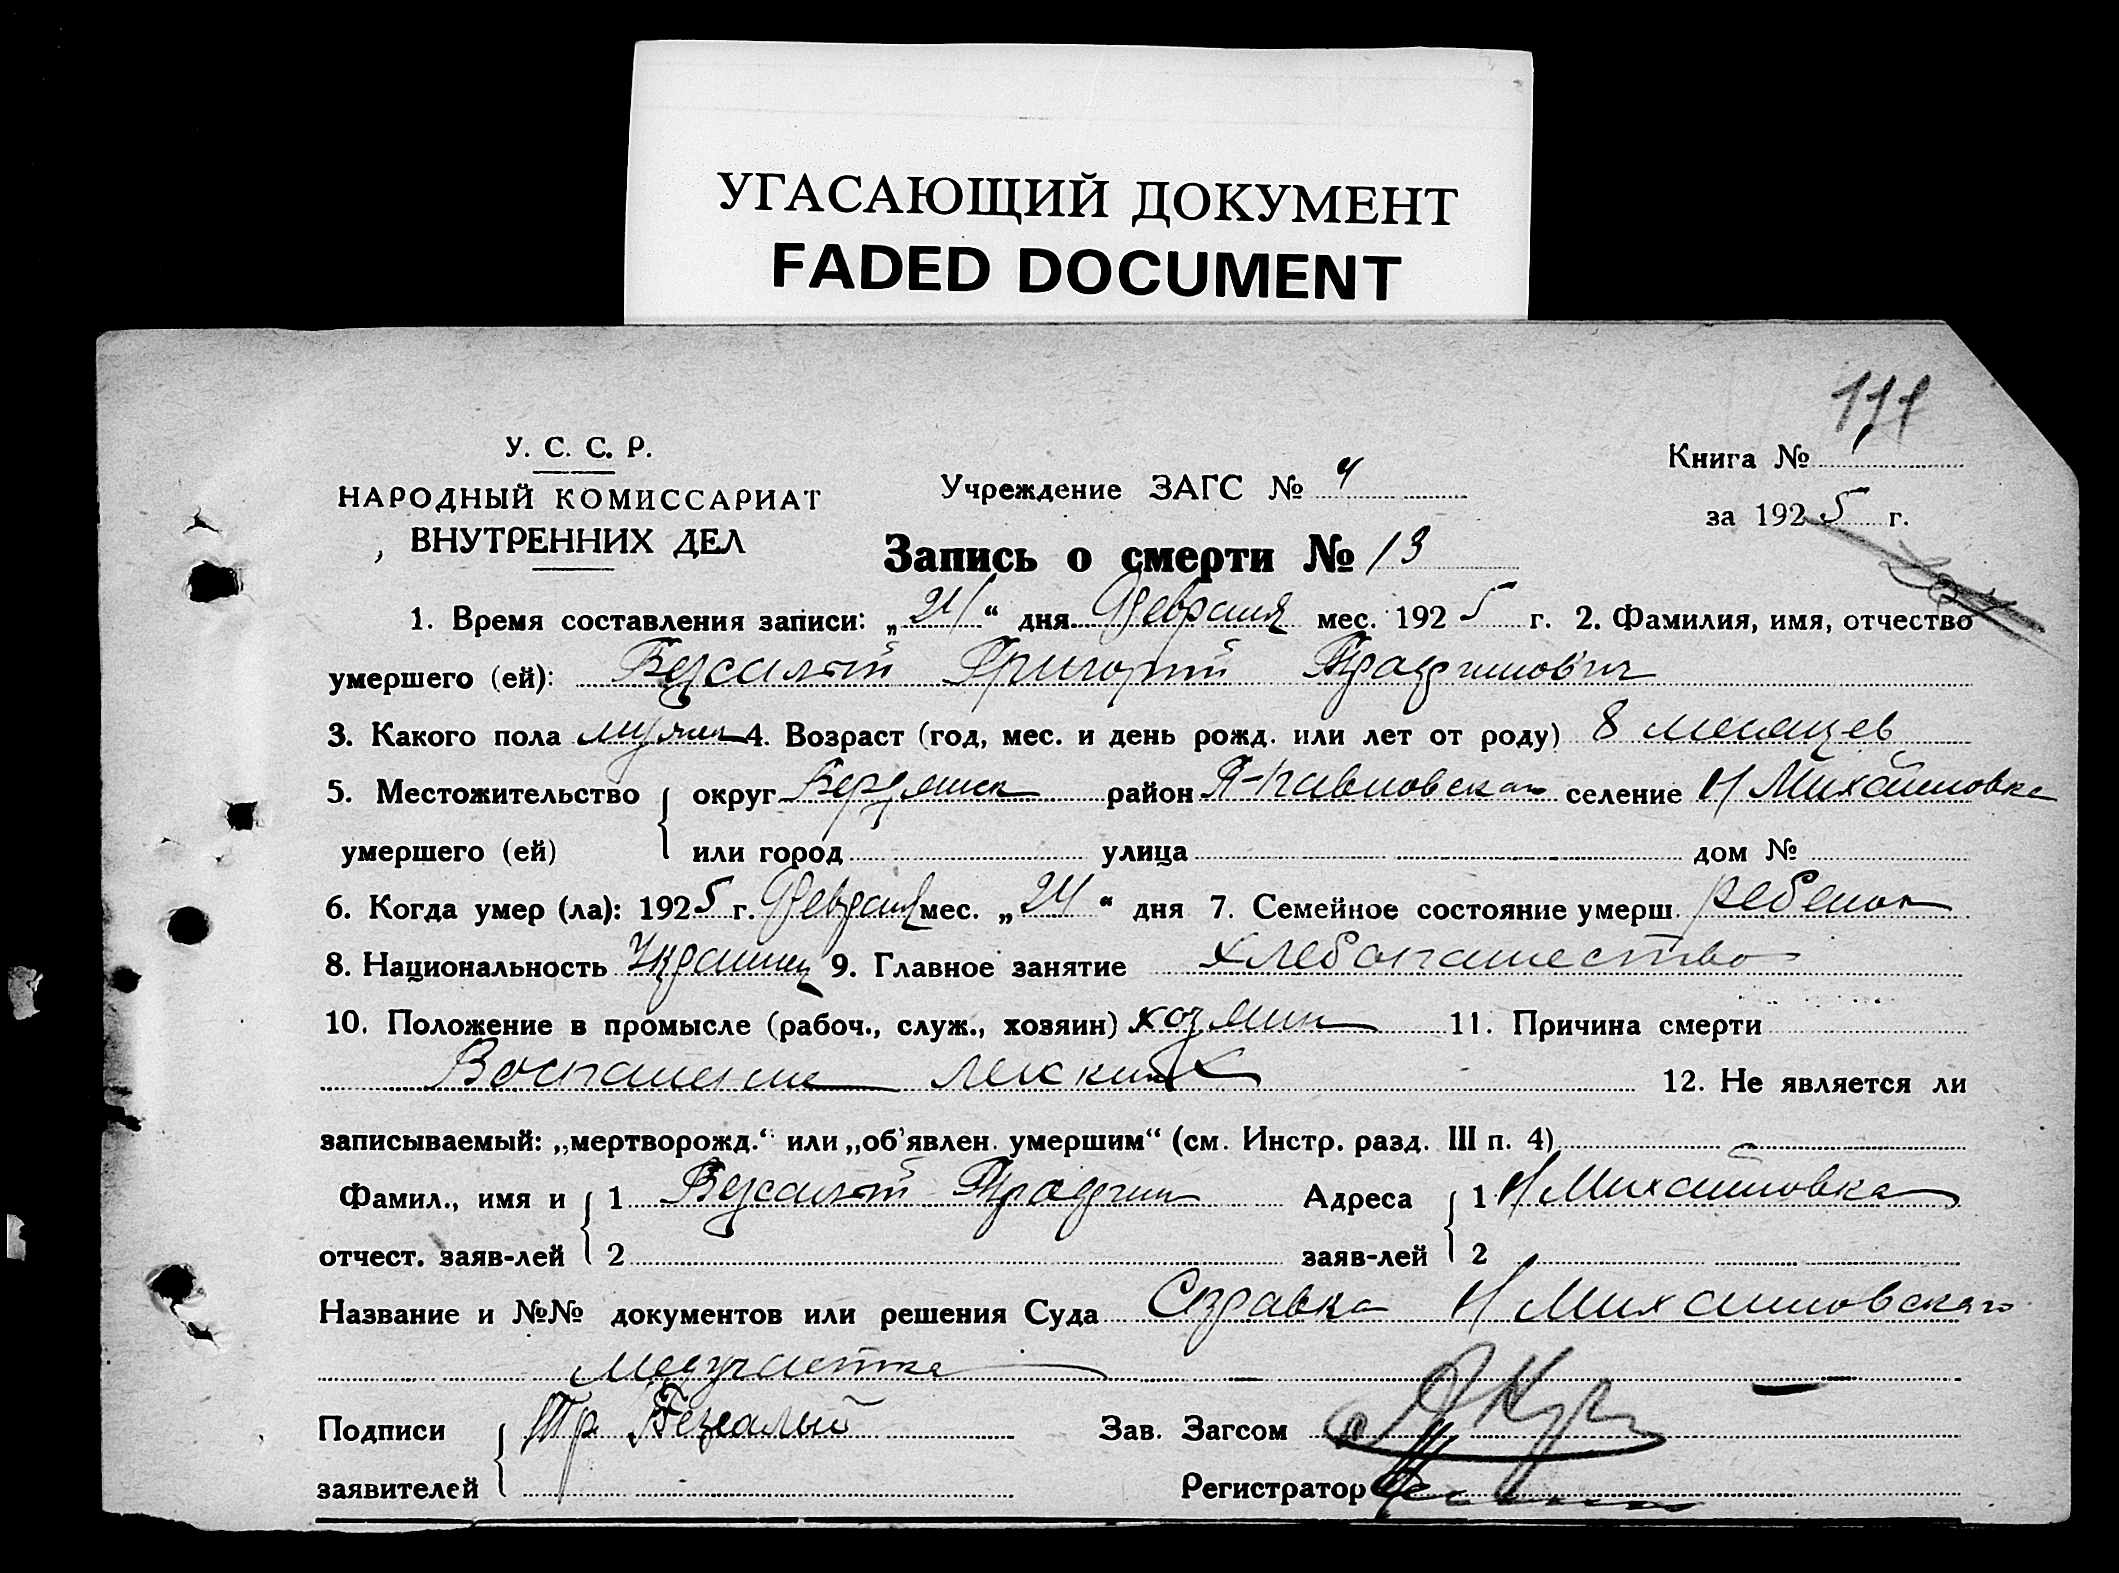 УГАСАЮЩИЙ ДОКУМЕНТ
FADED DOCUMENT
111
У. С. С. Р.
НАРОДНЫЙ КОМИССАРИАТ
ВНУТРЕННИХ ДЕЛ
Учреждение ЗАГС № 4
Книга №
за 1925 г.
Запись о смерти № 13
1. Время составления записи: „24“ дня Февраля мес. 1925 г. 2. Фамилия, имя, отчество
умершего (ей): Безсалый Григорий Трофимович
3. Какого пола мужск 4. Возраст (год, мес. и день рожд. или лет от роду) 8 месяцев
5. Местожительство округ Бердянск район Я-Павловская селение Н Михайловка
умершего (ей) или город улица дом №
6. Когда умер (ла): 1925 г. Февраля мес. „24“ дня 7. Семейное состояние умерш. ребенок
8. Национальность Украинец 9. Главное занятие хлебопашество
10. Положение в промысле (рабоч., служ., хозяин) хозяин 11. Причина смерти
Воспаление легких 12. Не является ли
записываемый: „мертворожд.“ или „об'явлен. умершим“ (см. Инстр. разд. III п. 4)
Фамил., имя и 1 Безсалый Трофим Адреса 1 Н Михайловка
отчест. заяв-лей 2 заяв-лей 2
Название и №№ документов или решения Суда Справка Н Михайловскаго
медучастка
Подписи Тр. Безсалый Зав. Загсом
заявителей Регистратор